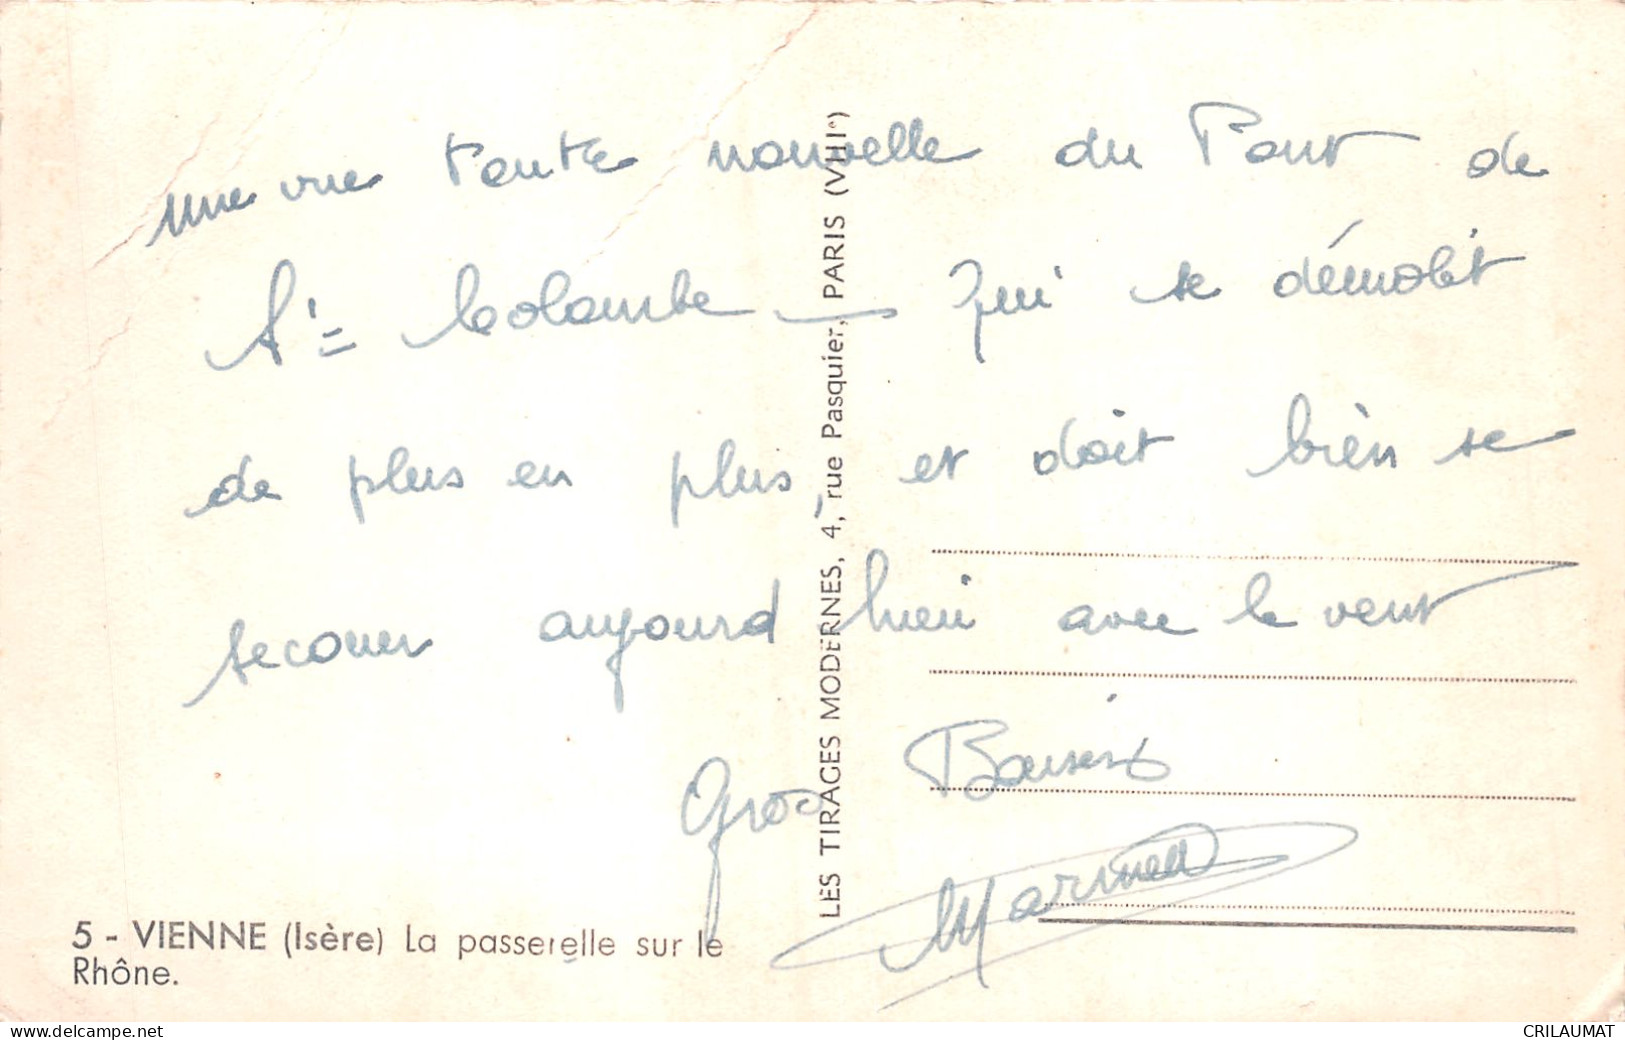 une vue toute nouvelle du Pont de
Ste Colombe — qui se démolit
de plus en plus, et doit bien se
secouer aujourd hui avec le vent
Gros Baisers
LES TIRAGES MODERNES, 4, rue Pasquier, PARIS (VIIIe)
5 - VIENNE (Isère) La passerelle sur le
Rhône.
www.delcampe.net
CRILAUMAT